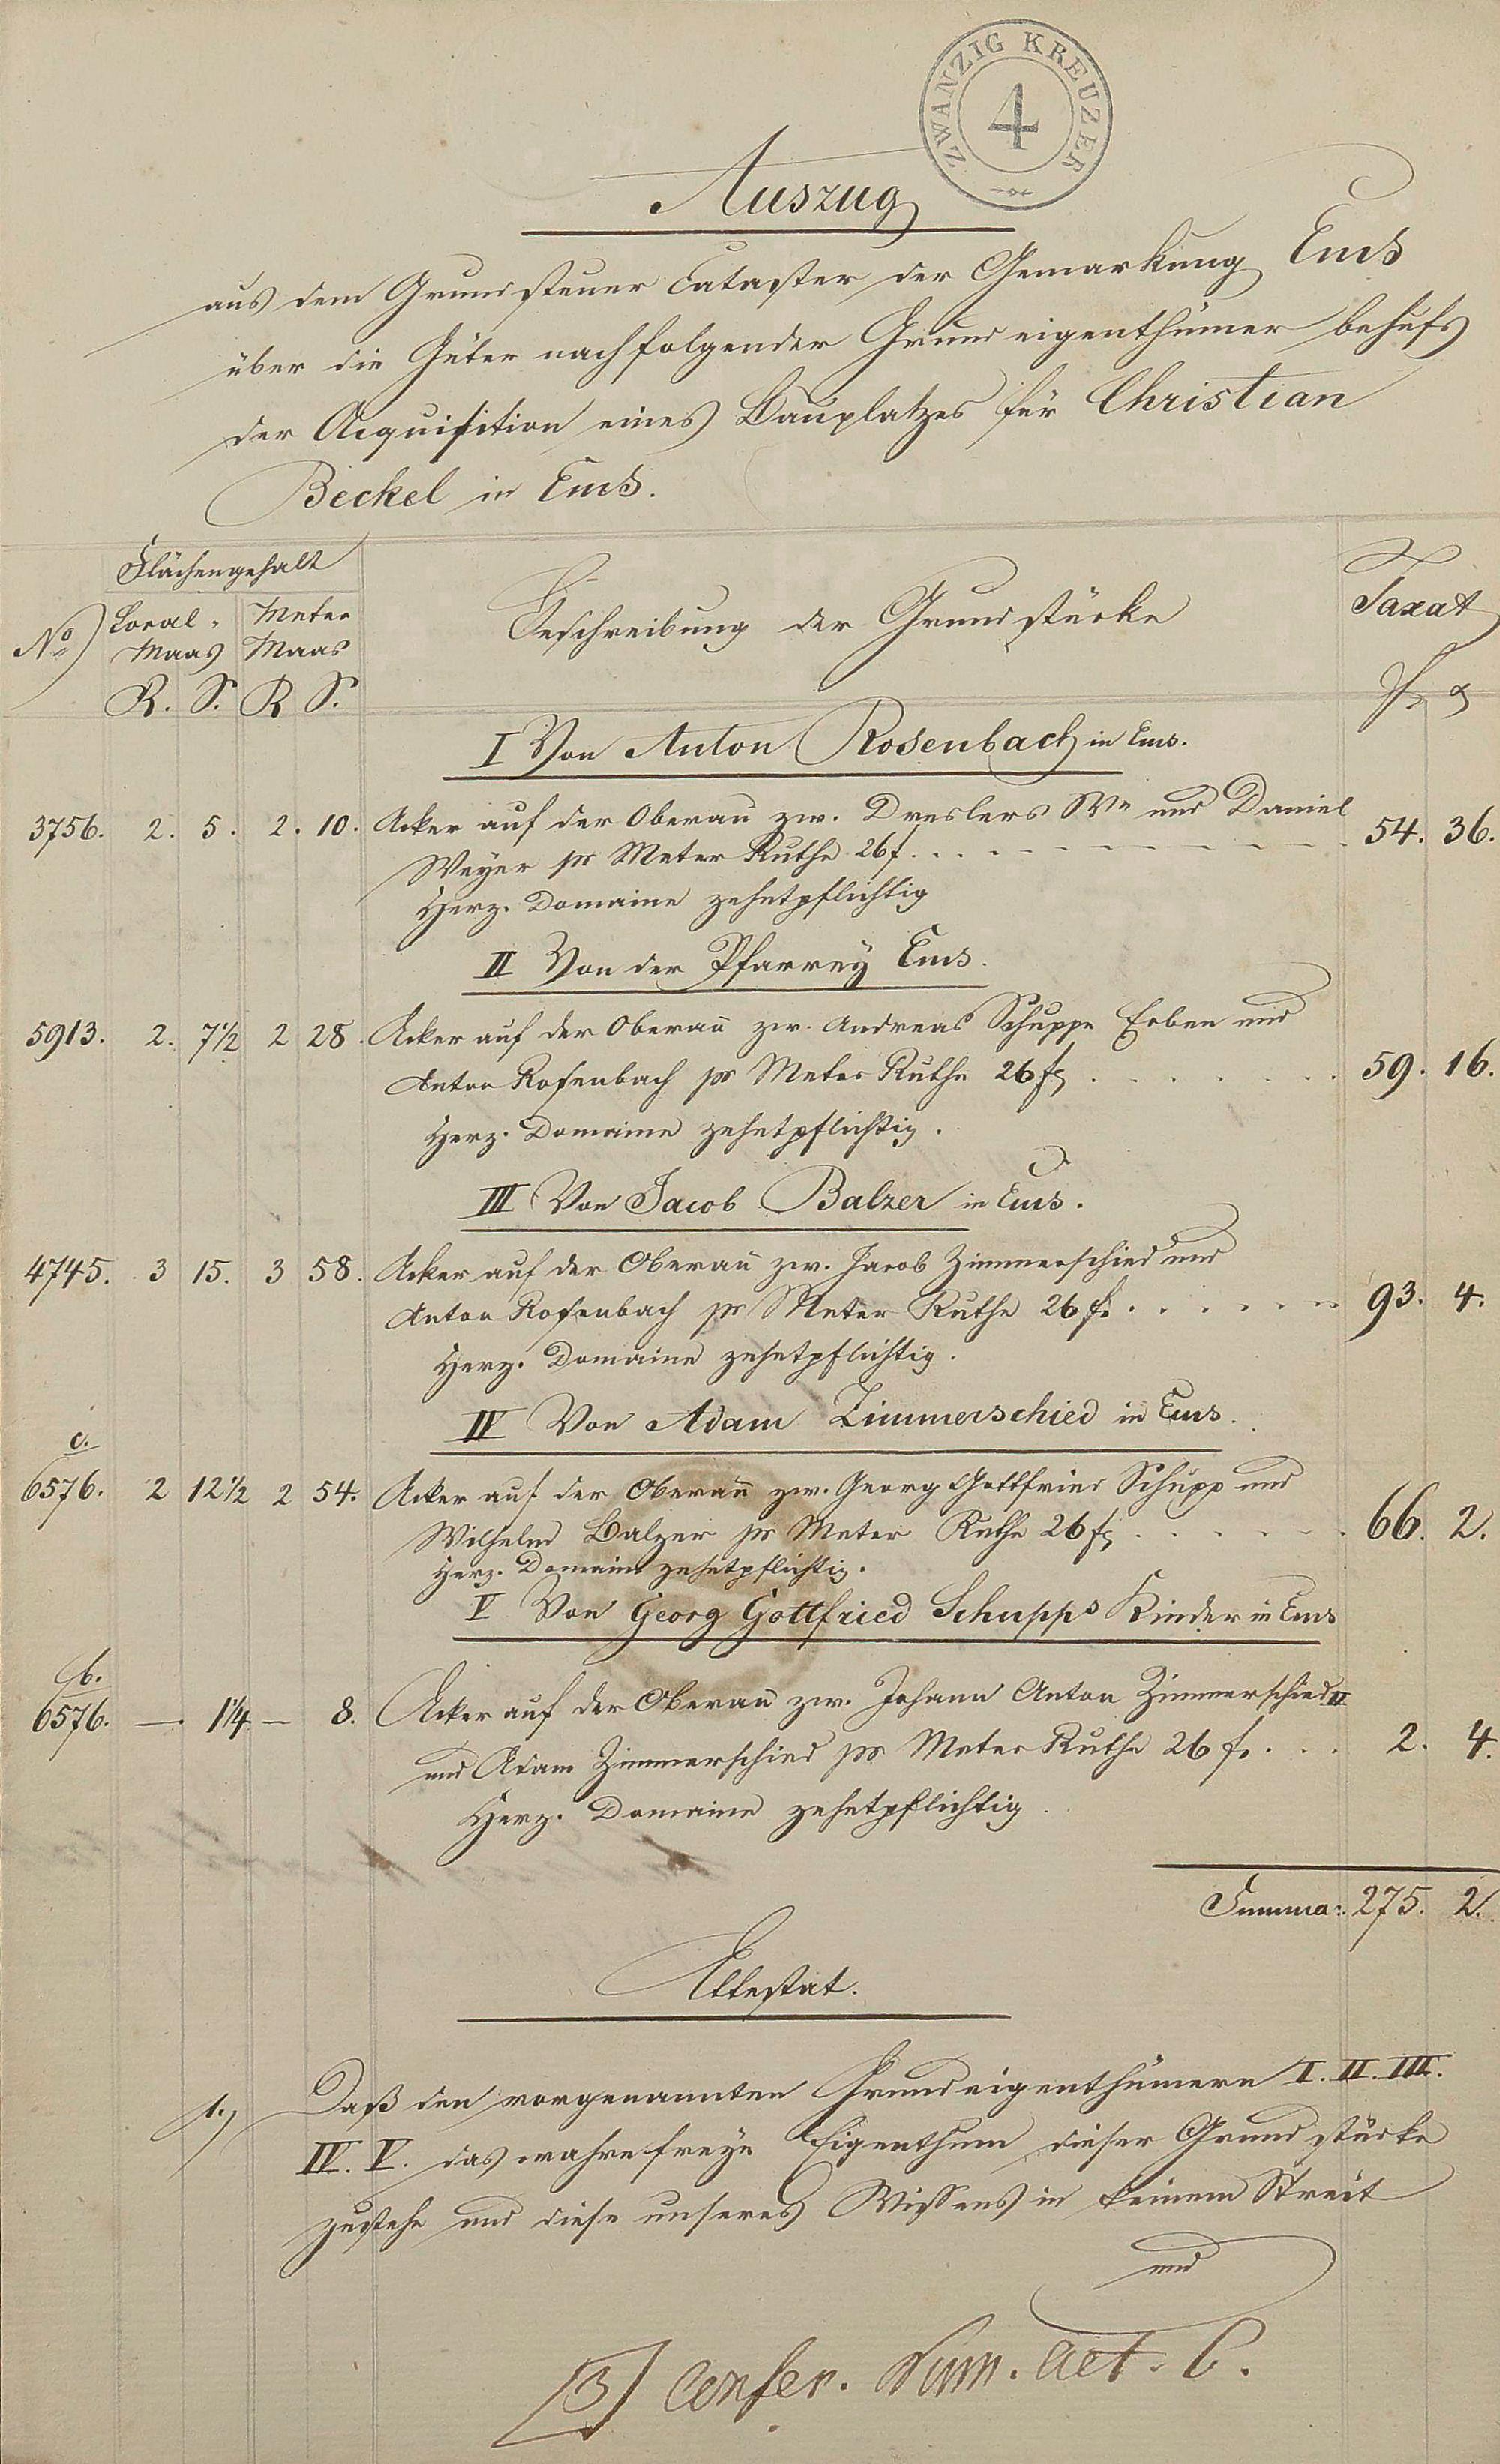 ZWANZIG KREUZER
4
Auszug
aus dem Grundsteuer Cataster der Gemarkung Ems
über die Güter nachfolgender Grundeigenthümer behufs
der Acquisition eines Bauplatzes für Christian
Beckel in Ems.
Flächengehalt
No Local- Meter Beschreibung der Grundstücke Taxat
Maas Maas
R. S. R S. f x
I Von Anton Rosenbach in Ems.
3756. 2. 5. 2. 10. Acker auf der Oberau zw. Dreslers Wn und Daniel
Weyer pr Meter Ruthe 26 f. 54. 36.
Herz. Domaine zehntpflichtig
II Von der Pfarrey Ems.
5913. 2. 7 1/2 2 28. Acker auf der Oberau zw. Andreas Schupps Erben und
Anton Rosenbach pr Meter Ruthe 26 f 59. 16.
Herz. Domaine zehntpflichtig.
III Von Jacob Balzer in Ems.
4745. 3 15. 3 58. Acker auf der Oberau zw. Jacob Zimmerschied und
Anton Rosenbach pr Meter Ruthe 26 f. 93. 4.
Herz. Domaine zehntpflichtig.
IV Von Adam Zimmerschied in Ems.
c.
6576. 2 12 1/2 2 54. Acker auf der Oberau zw. Georg Gottfried Schupp und
Wilhelm Balzer pr Meter Ruthe 26 f 66. 2.
Herz. Domaine zehntpflichtig.
V Von Georg Gottfried Schupps Kinder in Ems
b.
6576. — 1 1/4 — 8. Acker auf der Oberau zw. Johann Anton Zimmerschied II
und Adam Zimmerschied pr Meter Ruthe 26 f. 2. 4.
Herz. Domaine zehntpflichtig.
Summa: 275. 2.
Attestat.
1.) Daß den vorgenannten Grundeigenthümern I. II. III.
IV. V. das wahre freye Eigenthum dieser Grundstücke
zustehe und diese unseres Wissens in keinem Streit
und
[3] Confer. Num. act. 6.